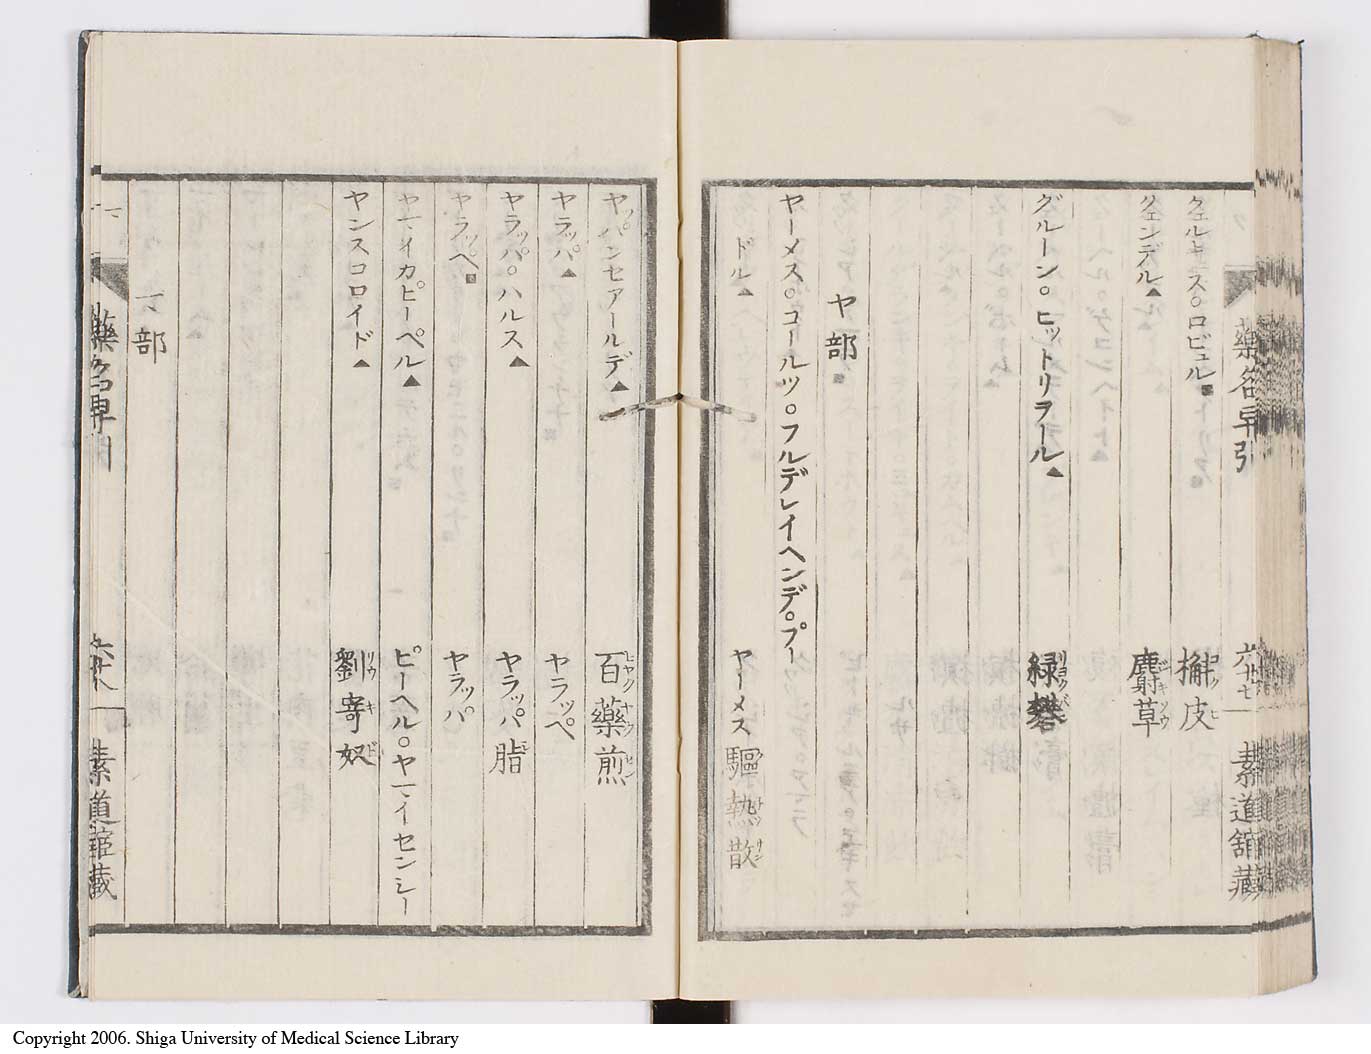 クェルキス○ロビュル 檞皮 コクヒ
クェンデル▲ 麝草 ジャソウ
グルーン○ヒットリヲール▲ 緑礬 リヨクバン
ヤ部
ヤーメス○コールツ○フルデレイヘンデ○プー
ドル▲ ヤーメス驅熱散
藥名早引 六十七 素道舘藏
ヤッパンセアールデ▲ 百藥煎 ヒヤクヤクセン
ヤラッパ▲ ヤラッペ
ヤラッパ○ハルス▲ ヤラッパ脂
ヤラッペ ヤラッパ
ヤーイカピーペル▲ ピーヘル○ヤーイセンシー
ヤンスコロイド▲ 劉寄奴 リウキド
マ部
藥名早引 六十八 素道舘藏
Copyright 2006. Shiga University of Medical Science Library